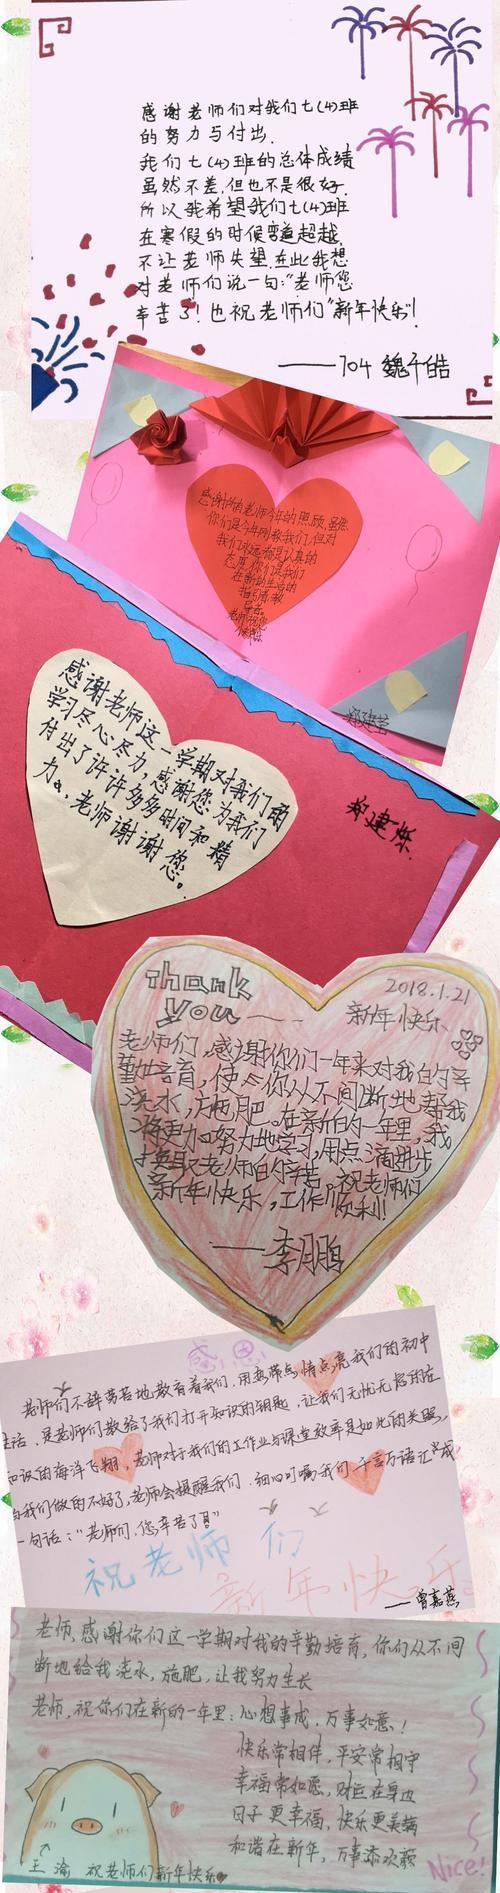 感谢老师们对我们七(4)班
的努力与付出.
我们七(4)班的总体成绩
虽然不差,但也不是很好.
所以我希望我们七(4)班
在寒假的时候弯道超越,
不让老师失望.在此我想
对老师们说一句:"老师您
辛苦了!也祝老师们"新年快乐"!
——704 魏千皓
感谢所有老师今年的照顾,虽然
你们是今年刚教我们,但对
我们永远都是认真的
态度,你们是我们
在新的生活的
指引者,教
导者。
老师祝您
郑建莹
感谢老师这一学期对我们的
学习尽心尽力,感谢您为我们
付出了许许多多时间和精
力。老师谢谢您。
郑建烁.
Thank
you——
2018.1.21
新年快乐
老师们,感谢你们一年来对我的辛
勤培育,使
浇水,施肥。在新的一年里,我
将更加努力地学习,用点滴进步
换取老师的辛苦。祝老师们
新年快乐,工作顺利!
——李鹏
感恩
老师们不辞劳苦地教育着我们,用热带与情点亮我们的初中
生活,是老师们教给了我们打开知识的钥匙,让我们无忧无虑的在
知识的海洋飞翔,老师对于我们的工作业与课堂效率是如此的关照,
当我们做的不好了,老师会提醒我们,细心叮嘱我们,千言万语汇成
一句话:"老师们,您辛苦了!"
祝老师们
新年快乐
——曾嘉燕
老师,感谢你们这一学期对我的辛勤培育,你们从不间
断地给我浇水,施肥,让我努力生长
老师,祝你们在新的一年里:心想事成,万事如意!
快乐常相伴,平安常相守
幸福常如愿,财运在身边
日子更幸福,快乐更美满
和谐在新年,万事添欢颜
王渝 祝老师们新年快乐
Nice!